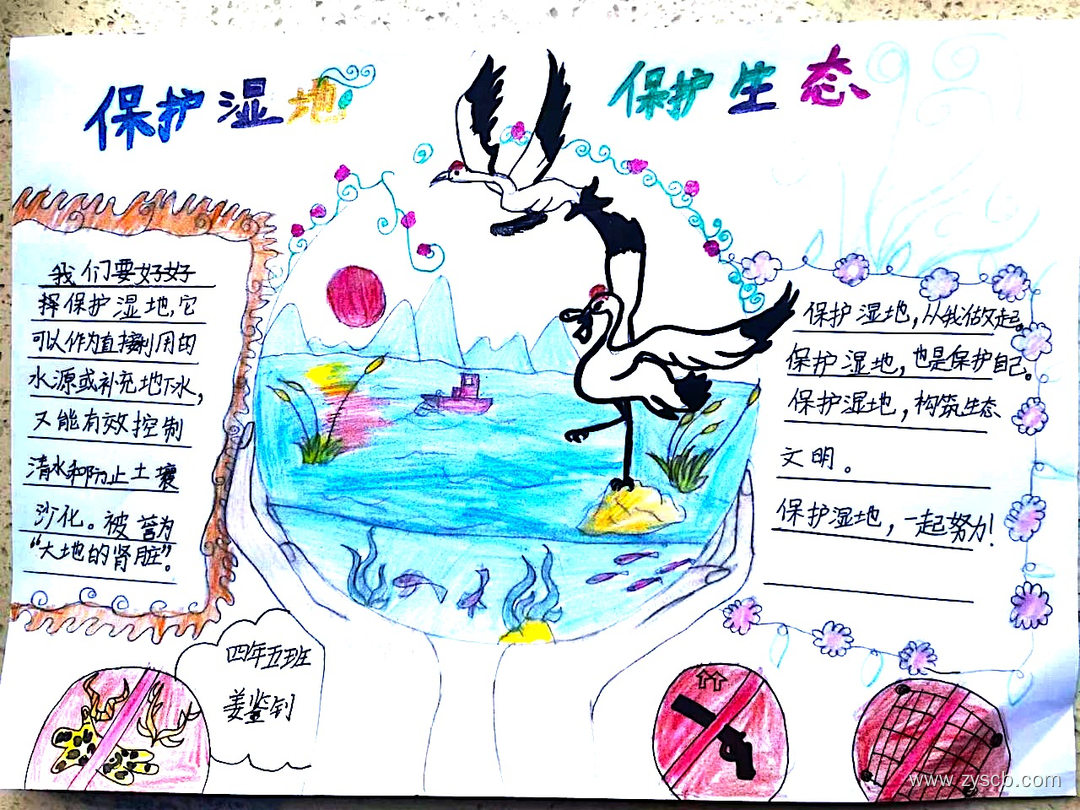 保护湿地
保护生态
我们要好好
择保护湿地,它
可以作为直接利用的
水源或补充地下水,
又能有效控制
清水和防止土壤
沙化。被誉为
“大地的肾脏”。
保护湿地,从我做起。
保护湿地,也是保护自己。
保护湿地,构筑生态
文明。
保护湿地,一起努力!
四年五班
姜鉴钊
www.zyscb.com